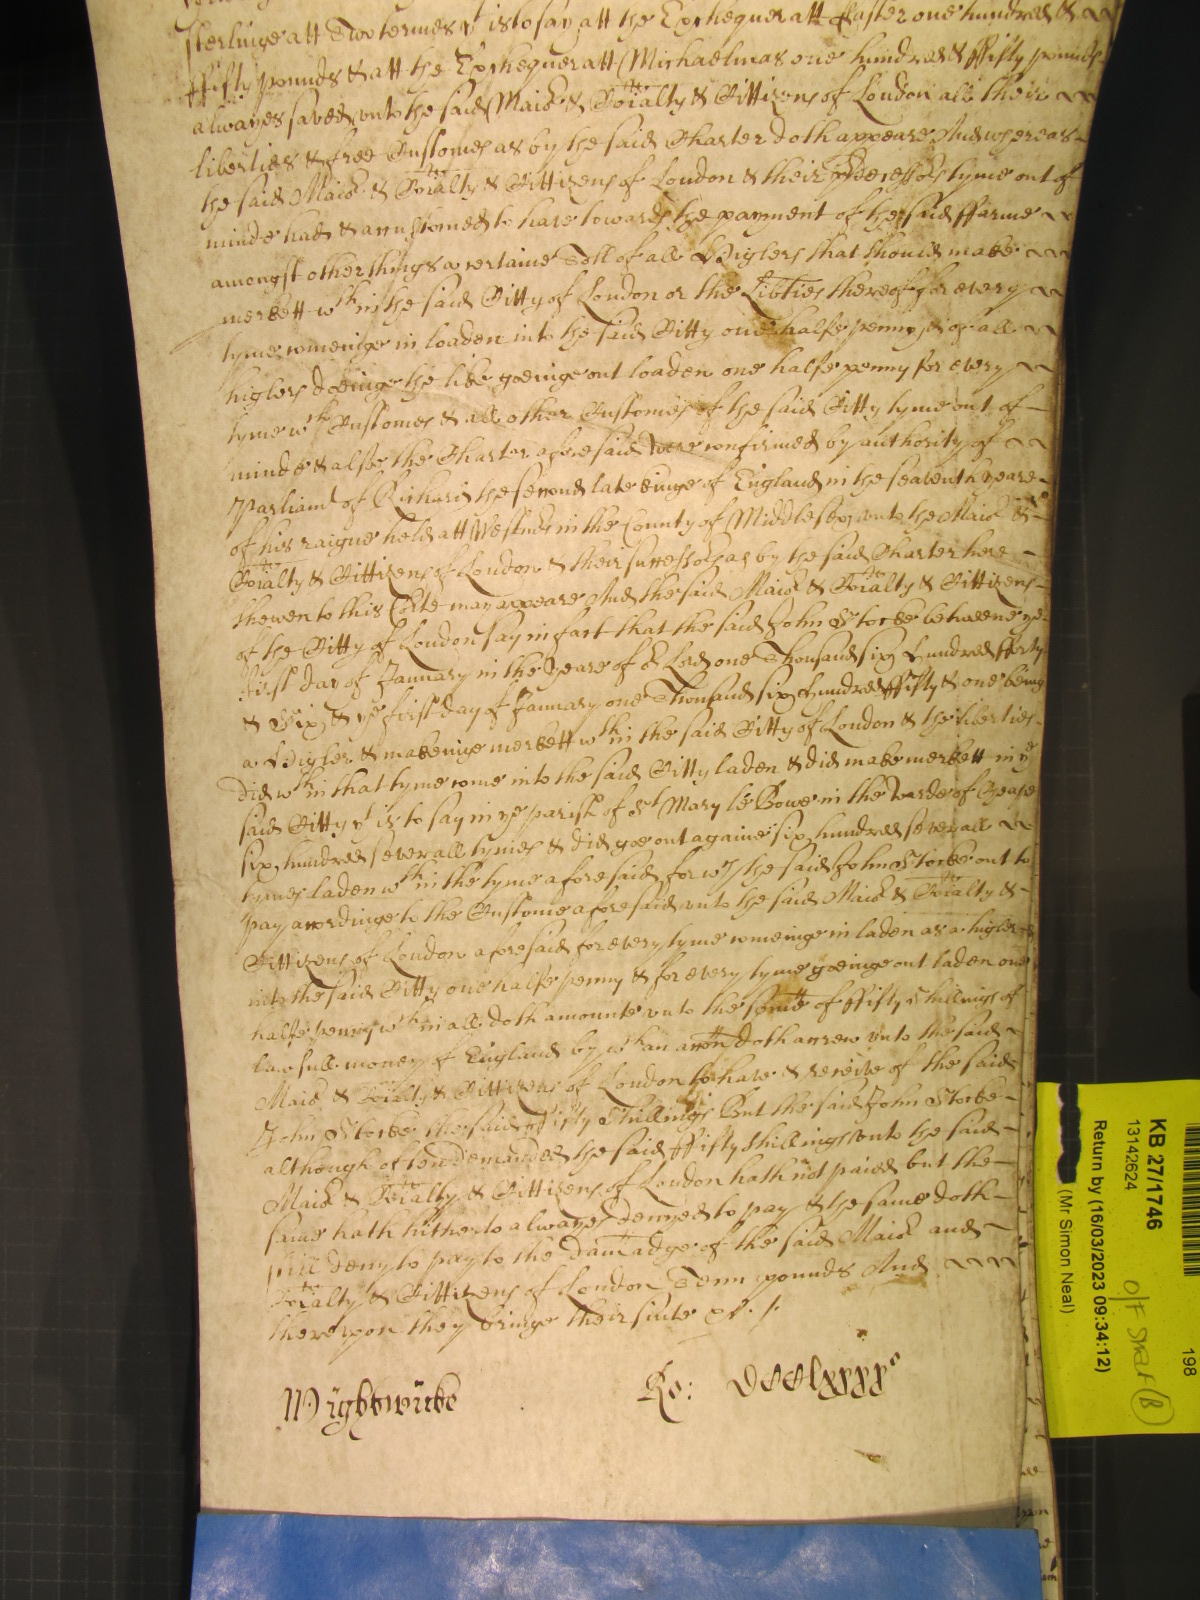 sterlinge att Two termes yt is to say att the Exchequer att Easter one hundred &
ffifty pounds & att the Exchequer att Michaelmas one hundred & ffifty pounds
alwayes saved unto the said Maior & Coialty & Cittizens of London all their
liberties & free Customes as by the said Charter doth appeare And whereas
the said Maior & Coialty & Cittizens of London & their predecessors tyme out of
minde had & accustomed to have towards the payment of the said ffarme
amongst other things a certaine Toll of all Higlers that should make
merkett wth in the said Citty of London or the Libties thereof for every
tyme comeinge in loaden into the said Citty one halfe penny & of all
higlers doeinge the like goeinge out loaden one halfe penny for every
tyme wch Customes & all other Customes of the said Citty tyme out of
minde & alsoe the Charter aforesaid were confirmed by authority of
Parliamt of Richard the second late kinge of England in the seaventh yeare
of his raigne held att Westmr in the County of Middlesex unto the Maior &
Coialty & Cittizens of London & their successors as by the said Charter here
shewen to this Corte may appeare And the said Maior & Coialty & Cittizens
of the Citty of London say in fact that the said John Storke betweene ye
first day of January in the yeare of or Lord one Thousand six hundred fforty
& Six & ye first day of January one Thousand six hundred ffifty & one being
a Higler & makeinge merkett wth in the said Citty of London & the liberties
did wth in that tyme come into the said Citty laden & did make merkett in ye
said Citty yt is to say in ye parish of St Mary le Bowe in the Warde of Cheape
six hundred severall tymes & did goe out againe six hundred severall
tymes laden wth in the tyme aforesaid for wch the said John Storke out to
pay accordinge to the Custome aforesaid unto the said Maior & Coialty &
Cittizens of London aforesaid for every tyme comeinge in laden as a higler
into the said Citty one halfe penny & for every tyme goeinge out laden one
halfe penny wch in all doth amounte unto the some of ffifty shillings of
lawfull money of England by wch an accon doth accrew unto the said
Maior & Coialty & Cittizens of London to have & receive of the said
John Storke the said ffifty shillings But the said John Storke
although often demanded the said ffifty shillings unto the said
Maior & Coialty & Cittizens of London hath not paied but the
same hath hitherto alwayes denyed to pay & the same doth
still deny to pay to the damadge of the said Maior and
Coialty & Cittizens of London Tenn pounds And
thereupon they bringe their suite &c
Wightwicke Ro:
KB 27/1746
13142624
Return by (16/03/2023 09:34:12)
(Mr Simon Neal)
198
O/F Straf (B)